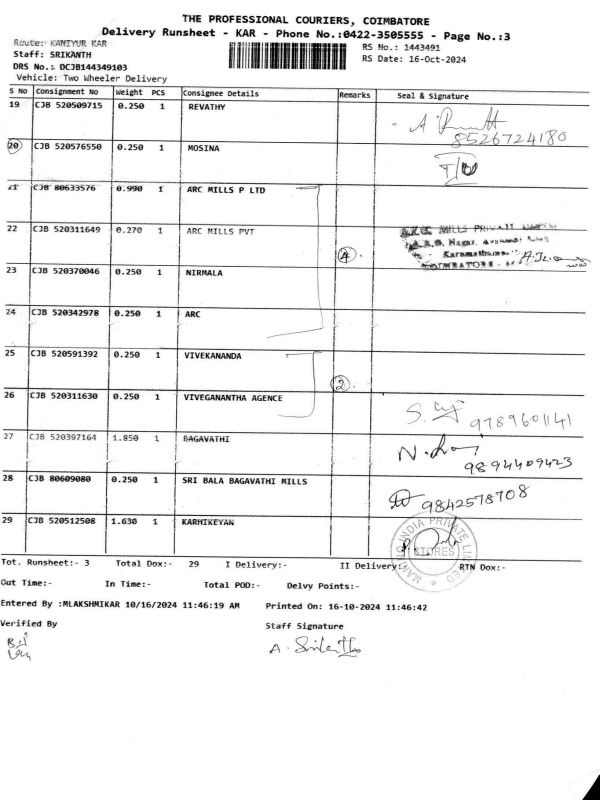 THE PROFESSIONAL COURIERS, COIMBATORE
Delivery Runsheet - KAR - Phone No.:0422-3505555 - Page No.:3
Route: KANIYUR KAR
RS No.: 1443491
Staff: SRIKANTH
RS Date: 16-Oct-2024
DRS No.: DCJB144349103
Vehicle: Two Wheeler Delivery
S No Consignment No Weight PCS Consignee Details Remarks Seal & Signature
19 CJB 520509715 0.250 1 REVATHY
8526724180
20 CJB 520576550 0.250 1 MOSINA
21 CJB 80633576 0.990 1 ARC MILLS P LTD
22 CJB 520311649 0.270 1 ARC MILLS PVT
4
MILLS PRIVATE
Nagar,
COIMBATORE
23 CJB 520370046 0.250 1 NIRMALA
24 CJB 520342978 0.250 1 ARC
25 CJB 520591392 0.250 1 VIVEKANANDA
2
26 CJB 520311630 0.250 1 VIVEGANANTHA AGENCE
9789601141
27 CJB 520397164 1.850 1 BAGAVATHI
9894409423
28 CJB 80609080 0.250 1 SRI BALA BAGAVATHI MILLS
9842578708
29 CJB 520512508 1.630 1 KARHIKEYAN
INDIA PRIVATE LIMITED
STORES
Tot. Runsheet:- 3 Total Dox:- 29 I Delivery:- II Delivery:- RTN Dox:-
Out Time:- In Time:- Total POD:- Delvy Points:-
Entered By :MLAKSHMIKAR 10/16/2024 11:46:19 AM Printed On: 16-10-2024 11:46:42
Verified By Staff Signature